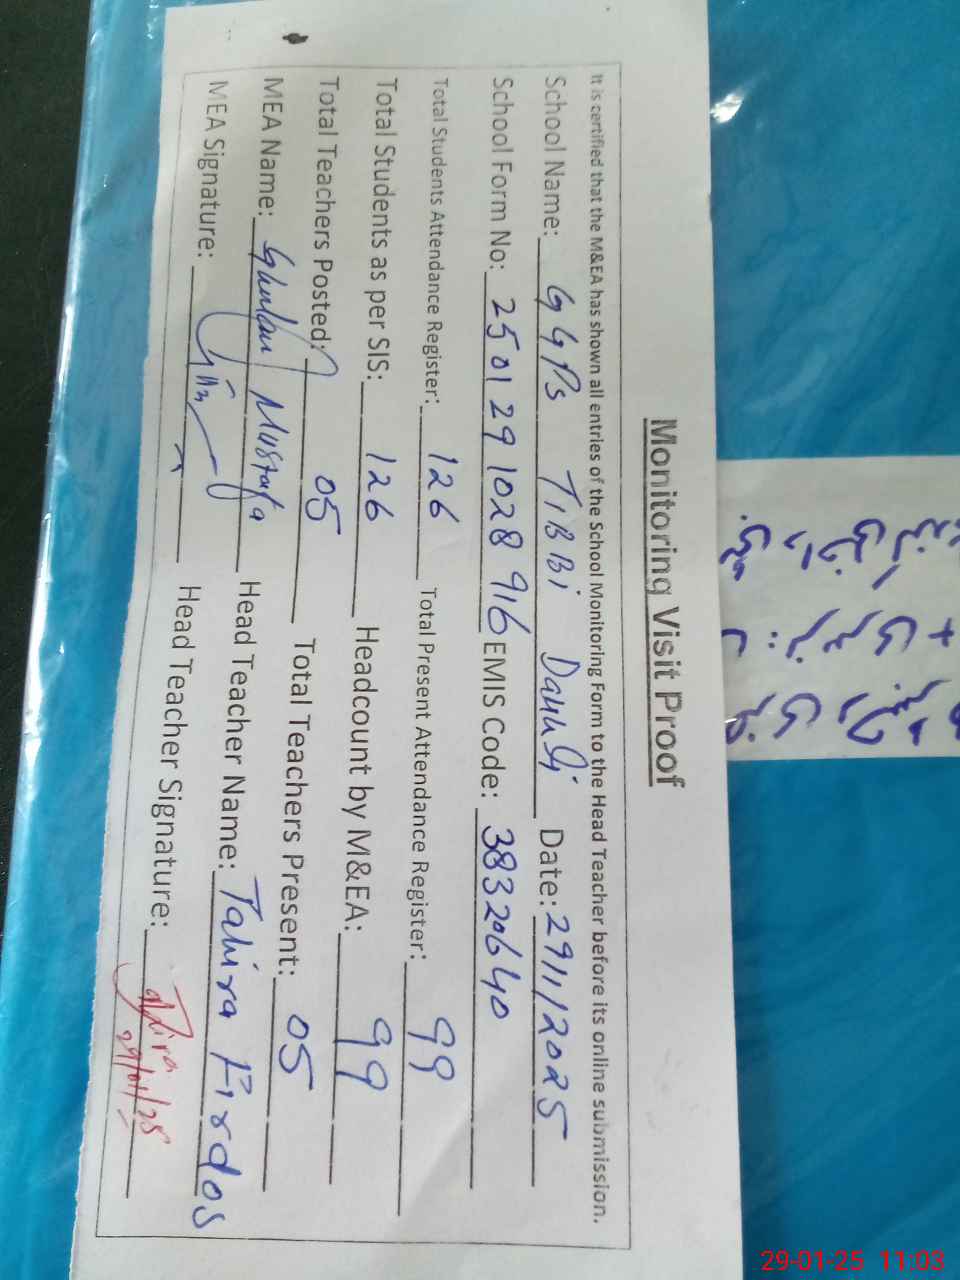 Monitoring Visit Proof
It is certified that the M&EA has shown all entries of the School Monitoring Form to the Head Teacher before its online submission.
School Name: GGPS TIBBI Date: 29/1/2025
School Form No: 2501291028916 EMIS Code: 38320640
Total Students Attendance Register: 126 Total Present Attendance Register: 99
Total Students as per SIS: 126 Headcount by M&EA: 99
Total Teachers Posted: 05 Total Teachers Present: 05
MEA Name: Ghulam Mustafa Head Teacher Name: Tahira Firdos
MEA Signature: Head Teacher Signature: Tahira
29/01/25
29-01-25 11:03